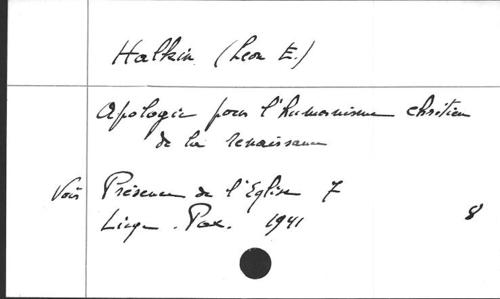 Halkin (Léon E.)
Apologie pour l'humanisme chrétien
de la renaissance
Voir Présence de l'Eglise 7
Liège. Pax. 1941 8